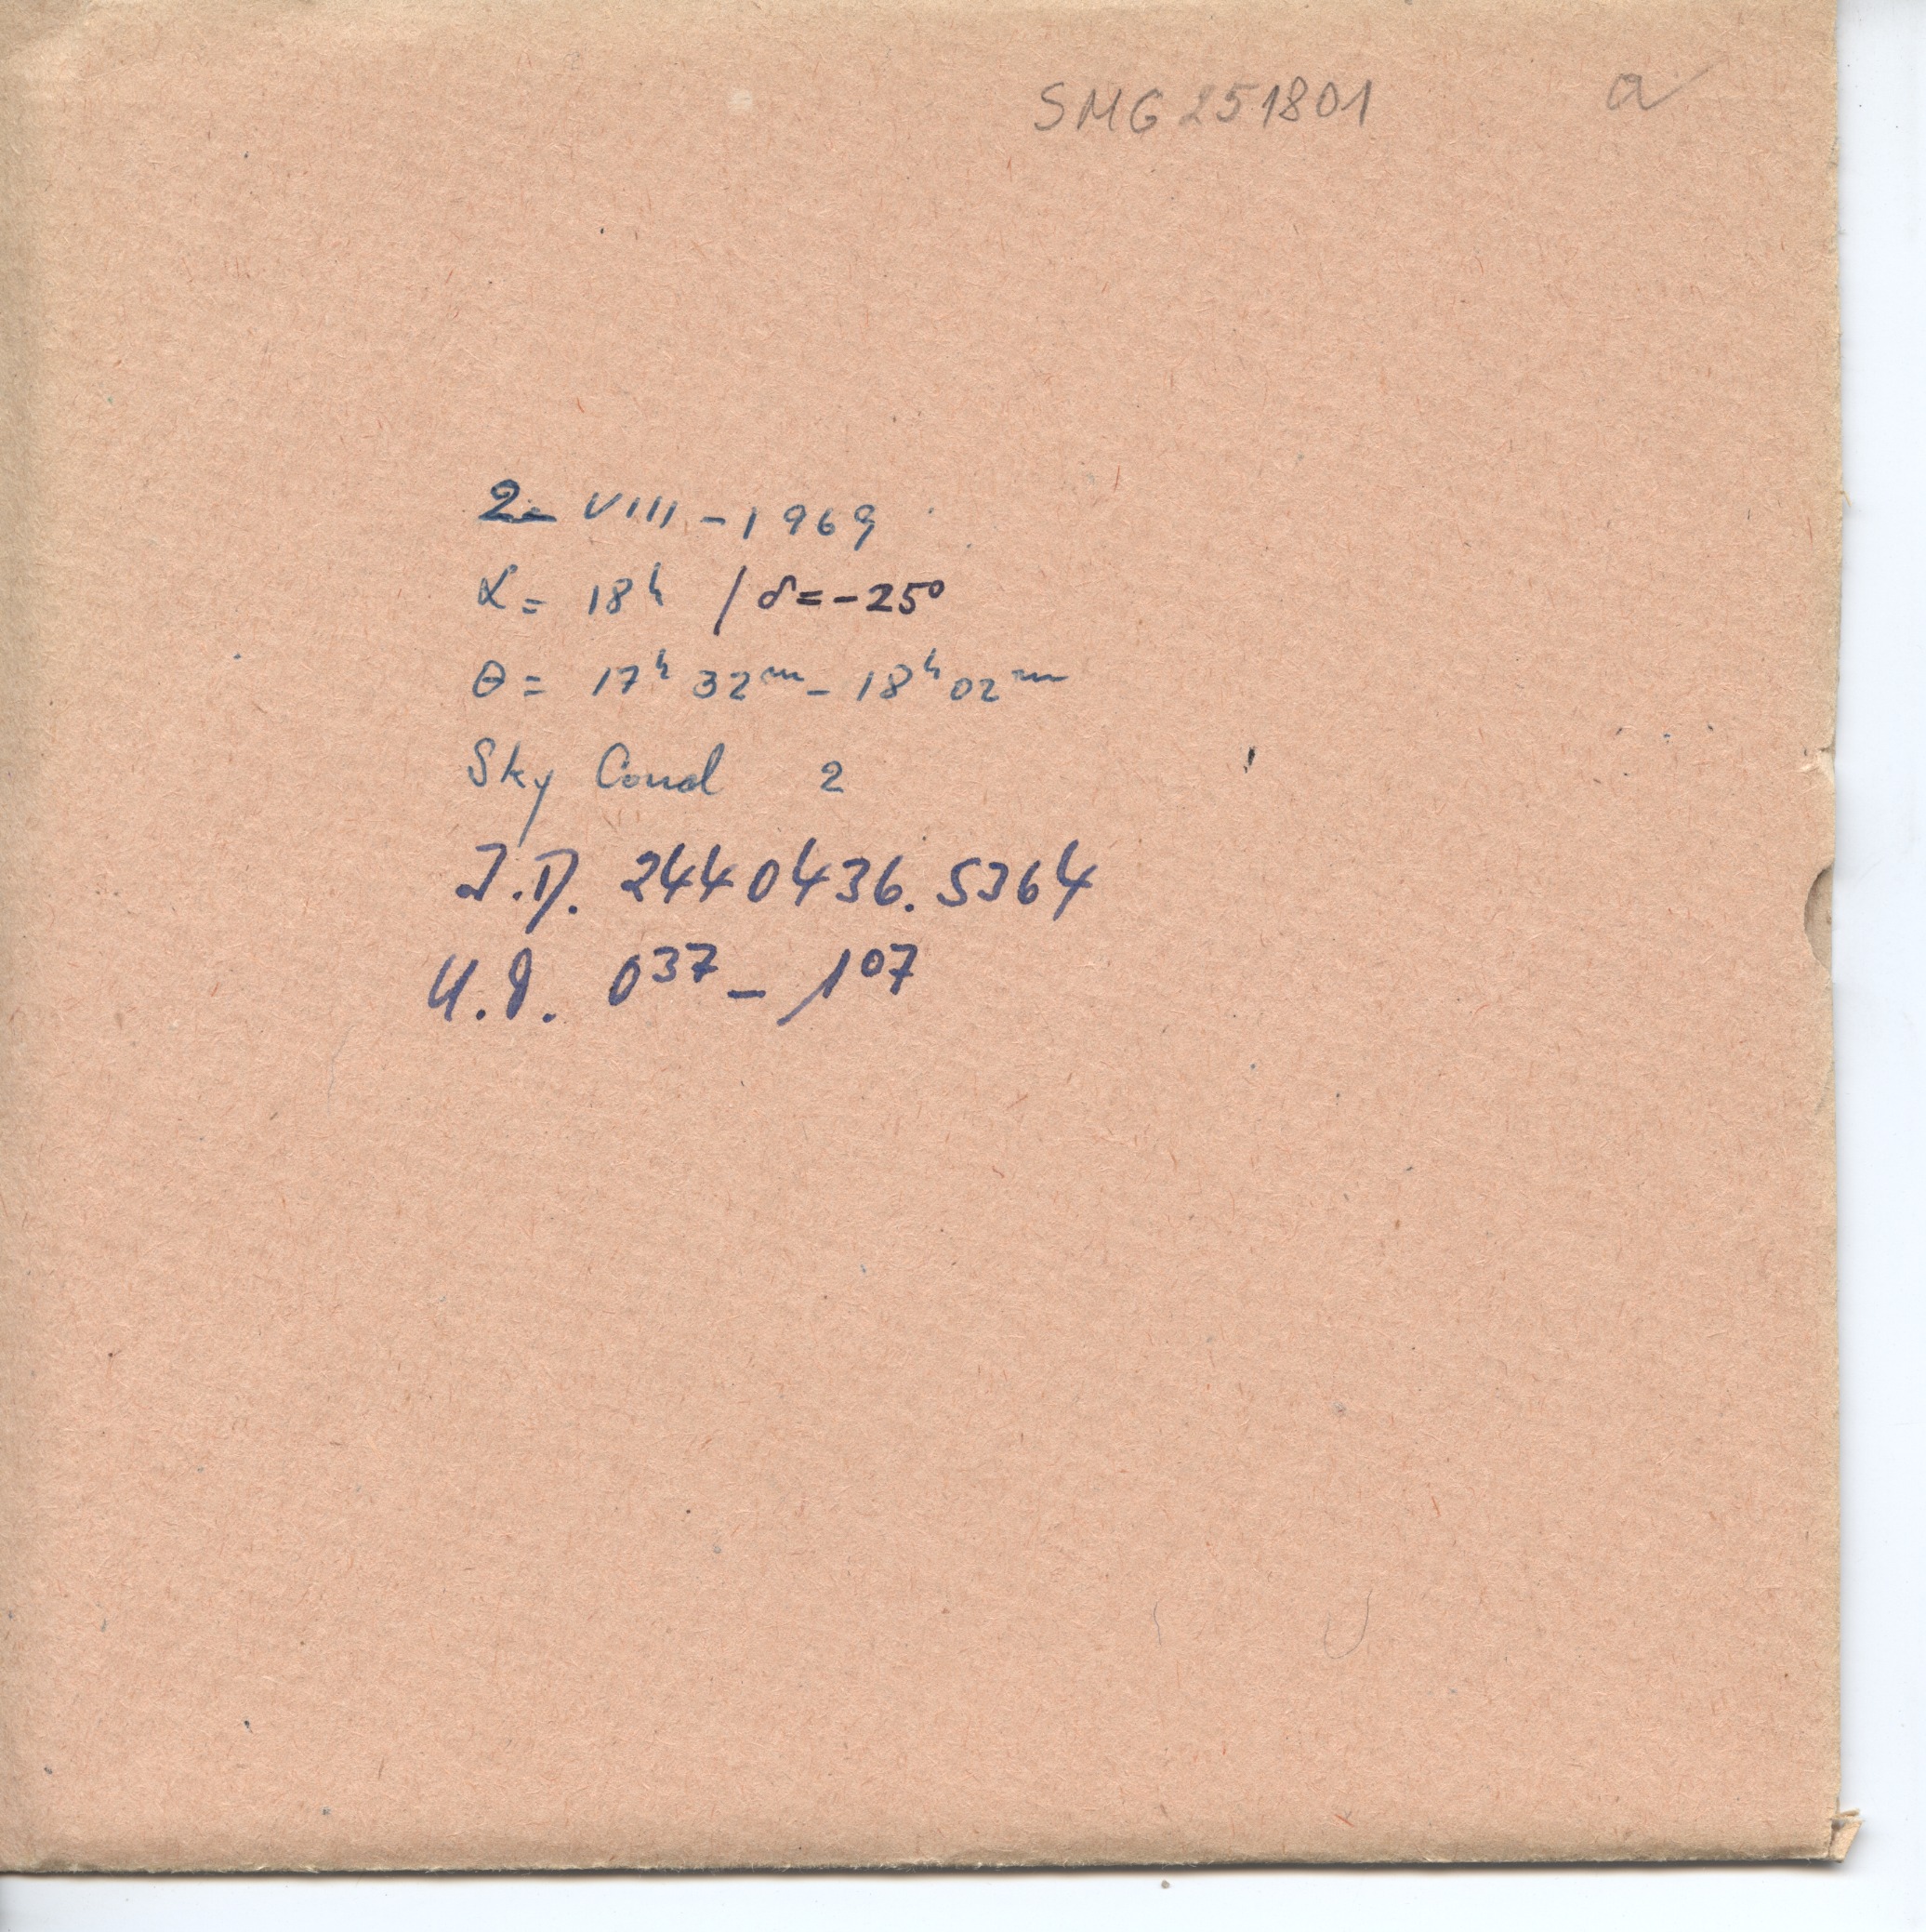 SMG 251801 a
2- VIII - 1969
α = 18ʰ / δ = -25°
θ = 17ʰ 32ᵐ - 18ʰ 02ᵐ
Sky Cond 2
J.D. 2440436.5364
U.T. 0³⁷ - 1⁰⁷